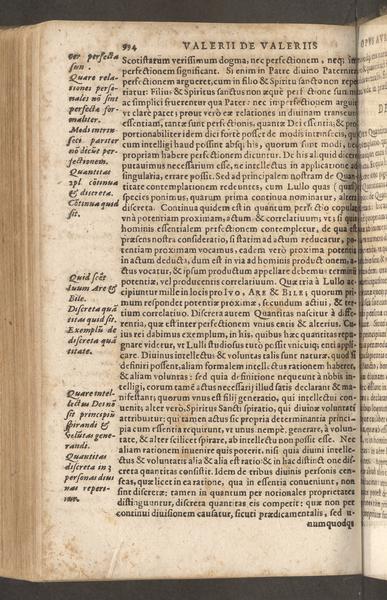 994
VALERII DE VALERIIS
Scotistarum verissimum dogma, nec perfectionem, neq; im
perfectionem significant. Si enim in Patre diuino Paternitas
perfectionem argueret, cum in filio & Spiritu sancto non repe
riatur: Filius & Spiritus sanctus non æquè perfectione summa,
ac simplici fruerentur qua Pater: nec imperfectionem arguit
vt clarè patet; prout verò eæ relationes in diuinam transeunt
essentiam, tantæ sunt perfectionis, quantæ Dei essentia; & pro
portionabiliter idem dici fortè posset de modis intrinsecis, quæ
cum intelligi haud possint absq; his, quorum sunt modi, nec
propriam habere perfectionem dicuntur. De his aliquid dicere
putauimus necessarium esse, ne intellectus in applicatione ad
singularia, errare possit. Sed ad principalem nostram de Quan
titate contemplationem redeuntes, cum Lullo quas (quasi)
species ponimus, quarum prima continua nominatur, altera
discreta. Continua quidem est in quantum perfectio copulat
vnà potentiam proximam, actum & correlatiuum; vt; si quis
hominis essentialem perfectionem contempletur, de qua est
præsens nostra consideratio, si statim ad actum reducatur, po-
tentiam proximam vocamus, eadem verò proxima potentia
in actum deducta, dum est in via ad hominis productionem, a-
ctus vocatur, & ipsum productum appellare debemus terminū
potentiæ, vel producentis correlatiuum. Quæ tria à Lullo ac-
cipiuntur mille in locis pro Ivo, Are & Bile; quorum pri
mum respondet potentiæ proximæ, secundum actui, & ter
tium correlatiuo. Discreta autem Quantitas nascitur à diffe-
rentia, quæ est inter perfectionem vnius entis & alterius. Cu-
ius rei dabimus exemplum, in his, quibus hæc quantitas repu-
gnare videtur, vt Lulli studiosus tutò possit vnicuiq; enti appli-
care. Diuinus intellectus & voluntas talis sunt naturæ, quod si
definiri possent, aliam formalem intellectus rationem haberet,
& aliam voluntas: sed quia definitione nequeunt à nobis in-
telligi, eorum tamē actus necessarij illud satis declarant & ma-
nifestant; quorum vnus est filij generatio, qui intellectui con-
uenit; alter verò, Spiritus Sancti spiratio, qui diuinæ voluntati
attribuitur; qui tamen actus sic propria determinantia princi-
pia cum essentia requirunt, vt vnus nempè, generare, à volun-
tate, & alter scilicet spirare, ab intellectu non possit esse. Nec
aliam rationem inuenire quis poterit, nisi quia diuini intelle-
ctus & voluntatis alia & alia est ratio: & in hac distinctione dis-
creta quantitas consistit. Idem de tribus diuinis personis cen-
seas, quæ licet in ea ratione, qua in essentia conueniunt, non
sint discretæ: tamen in quantum per notionales proprietates
distinguuntur, discreta quantitas eis competit: quæ non per
continui diuisionem causatur, sicuti prædicamentalis, sed u-
numquodque
ver perfecta
sun.
Quare rela-
tiones perso-
nales nō sint
perfecta for-
maliter.
Modi intrin
seci pariter
nō dicūt per-
fectionem.
Quantitas
2pl. cōtinua
& discreta.
Cōtinua quid
sit.
Quid sāt
duum Are &
Bile.
Discreta quā
titas quid sit.
Exemplū de
discreta quā
titate.
Quare intel-
lectus Dei nō
sit principiū
spirandi &
volūtas gene-
randi.
Quantitas
discreta in 3
personas diui
nas reperi-
tur.